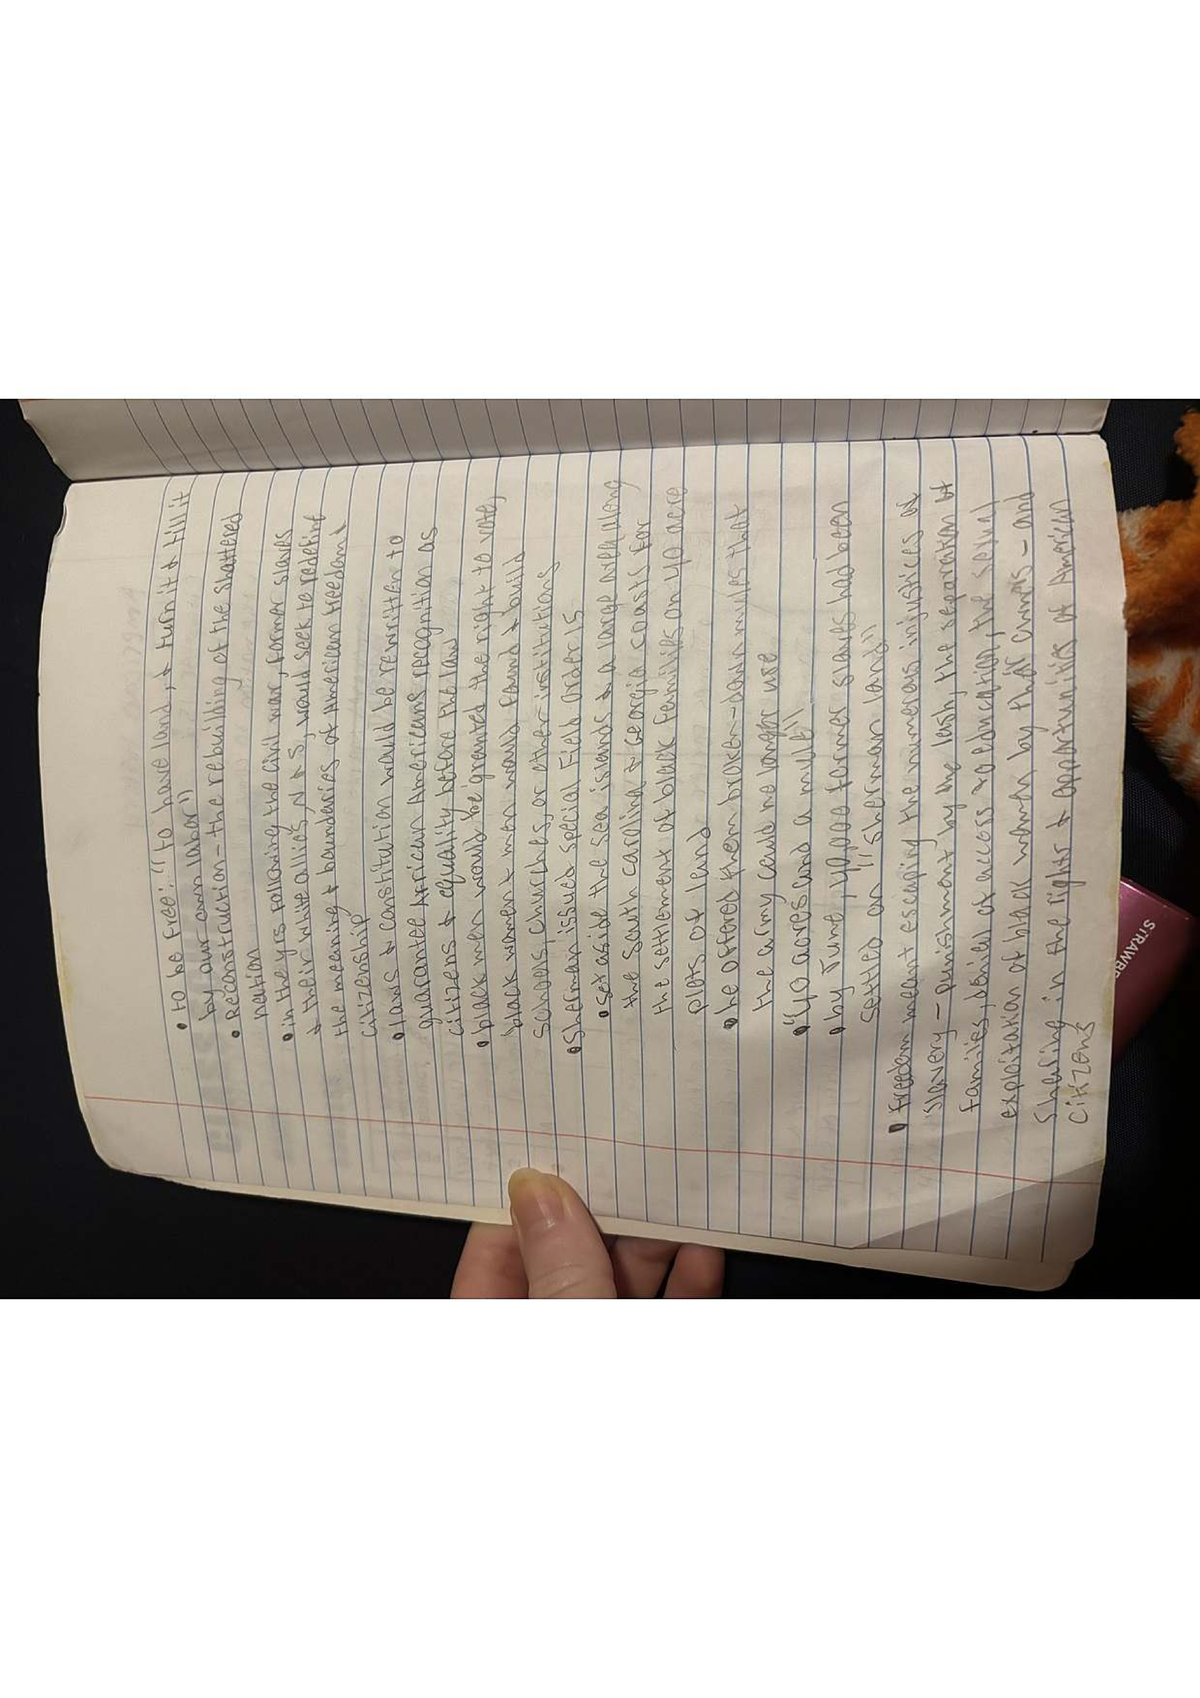 • to be free: "to have land, & turn it & till it
by our own labor"
• Reconstruction - the rebuilding of the shattered
nation
• in the yrs following the civil war, former slaves
& their white allies, N & S, would seek to redefine
the meaning & boundaries of American freedom &
citizenship
• laws & constitution would be rewritten to
guarantee African Americans recognition as
citizens & equality before the law
• black men would be granted the right to vote,
black women & men would found & build
schools, churches, or other institutions
• Sherman issued special Field order 15
• set aside the sea islands & a large area along
the South carolina & Georgia coasts for
the settlement of black families on 40 acre
plots of land
• he offered them broken-down mules that
the army could no longer use
• "40 acres and a mule"
• by June, 40,000 former slaves had been
settled on "sherman land"
• freedom meant escaping the numerous injustices of
slavery - punishment by the lash, the separation of
families, denial of access to education, the sexual
exploitation of black women by their owners - and
sharing in the rights & opportunities of American
citizens
STRAWBE